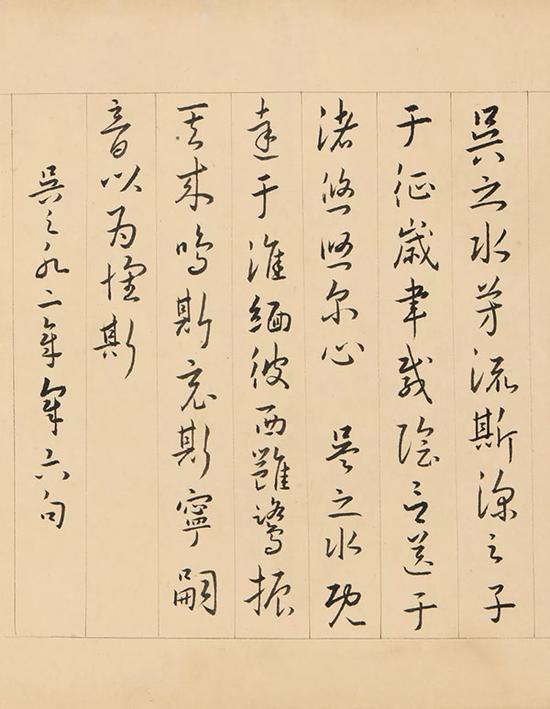 吳之水芳流斯深之子
于征歲聿載陰言送于
渚悠悠尔心 吳之水既
達于淮緬彼西雝鷺振
其來鳴斯斯寧嗣
音以為懷斯
吳之水二章章六句